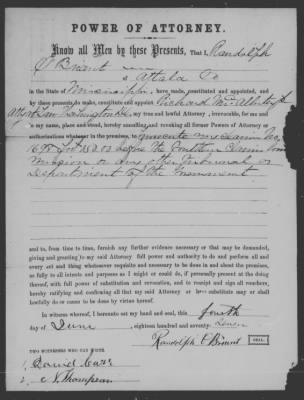 POWER OF ATTORNEY.
Know all Men by these Presents, That I, Randolph
Briant
of Attala Co
in the State of Mississippi, have made, constituted and appointed, and
by these presents do make, constitute and appoint Richard McAllister Jr
Washington D.C. my true and lawful Attorney, irrevocable, for me and
in my name, place and stead, hereby annulling and revoking all former Powers of Attorney or
authorizations whatever in the premises, to prosecute my claim No.
before the Southern Claims Com
mission or any other Tribunal or
Department of the Government
and to, from time to time, furnish any further evidence necessary or that may be demanded,
giving and granting to my said Attorney full power and authority to do and perform all and
every act and thing whatsoever requisite and necessary to be done in and about the premises,
as fully to all intents and purposes as I might or could do, if personally present at the doing
thereof, with full power of substitution and revocation, and to receipt and sign all vouchers,
hereby ratifying and confirming all that my said Attorney or his substitute may or shall
lawfully do or cause to be done by virtue hereof.
In witness whereof, I hereunto set my hand and seal, this fourth
day of June, eighteen hundred and seventy-
Randolph Briant SEAL.
TWO WITNESSES WHO CAN WRITE
1. David
2. Thompson